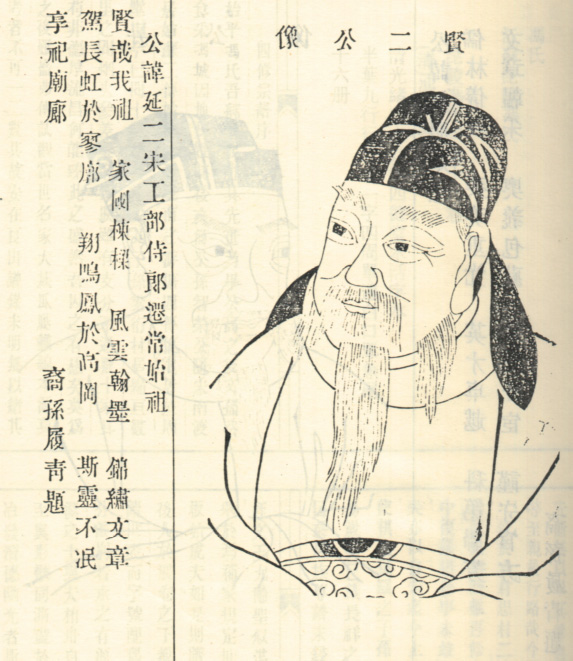 賢二公像
公諱延二宋工部侍郎遷常始祖
賢哉我祖 家國棟樑 風雲翰墨 錦繡文章
駕長虹於寥廓 翔鳴鳳於高岡 斯靈不泯
享祀廟廊 裔孫履青題